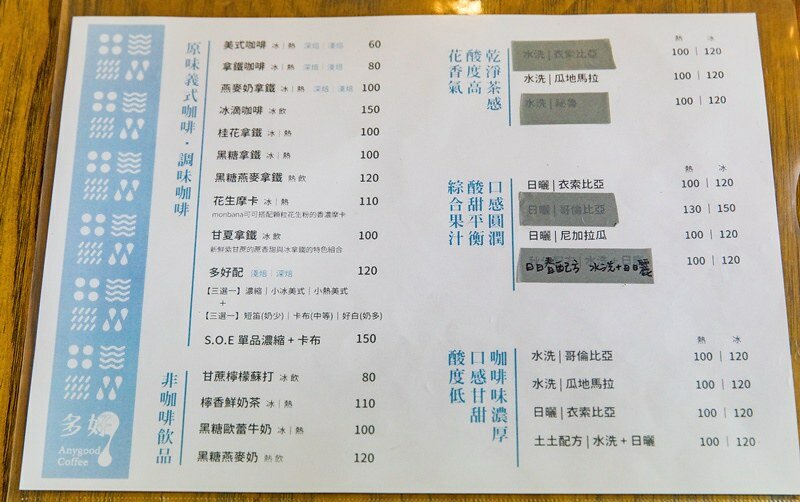 原味義式咖啡・調味咖啡
美式咖啡 冰｜熱 深焙｜淺焙 60
拿鐵咖啡 冰｜熱 深焙｜淺焙 80
燕麥奶拿鐵 冰｜熱 深焙｜淺焙 100
冰滴咖啡 冰飲 150
桂花拿鐵 冰｜熱 100
黑糖拿鐵 冰｜熱 100
黑糖燕麥拿鐵 熱飲 120
花生摩卡 冰｜熱 110
monbana可可搭配顆粒花生粉的香濃摩卡
甘夏拿鐵 冰飲 100
新鮮紫甘蔗的蔗香甜與冰拿鐵的特色組合
多好配 淺焙｜深焙 120
【三選一】濃縮｜小冰美式｜小熱美式
+
【三選一】短笛(奶少)｜卡布(中等)｜好白(奶多)
S.O.E 單品濃縮 + 卡布 150
非咖啡飲品
甘蔗檸檬蘇打 冰飲 80
檸香鮮奶茶 冰｜熱 110
黑糖歐蕾牛奶 冰｜熱 100
黑糖燕麥奶 熱飲 120
多好
Anygood
Coffee
乾淨茶感
酸度高
花香氣
熱 冰
水洗｜衣索比亞 100｜120
水洗｜瓜地馬拉 100｜120
水洗｜秘魯 100｜120
口感圓潤
酸甜平衡
綜合果汁
熱 冰
日曬｜衣索比亞 100｜120
日曬｜哥倫比亞 130｜150
日曬｜尼加拉瓜 100｜120
日日春配方 水洗+日曬 100｜120
咖啡味濃厚
口感甘甜
酸度低
熱 冰
水洗｜哥倫比亞 100｜120
水洗｜瓜地馬拉 100｜120
日曬｜衣索比亞 100｜120
土土配方｜水洗 + 日曬 100｜120